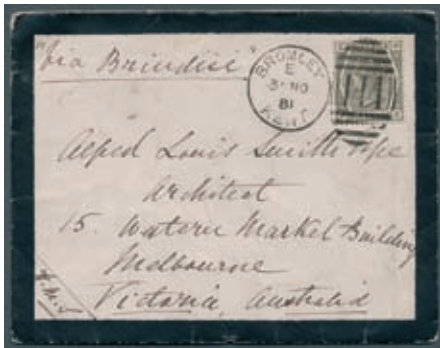 "Via Brindisi"
BROMLEY
E
3 NO
81
KENT
Alfred Louis Smith Esqre
Architect
15. Western Market Building
Melbourne
Victoria, Australia